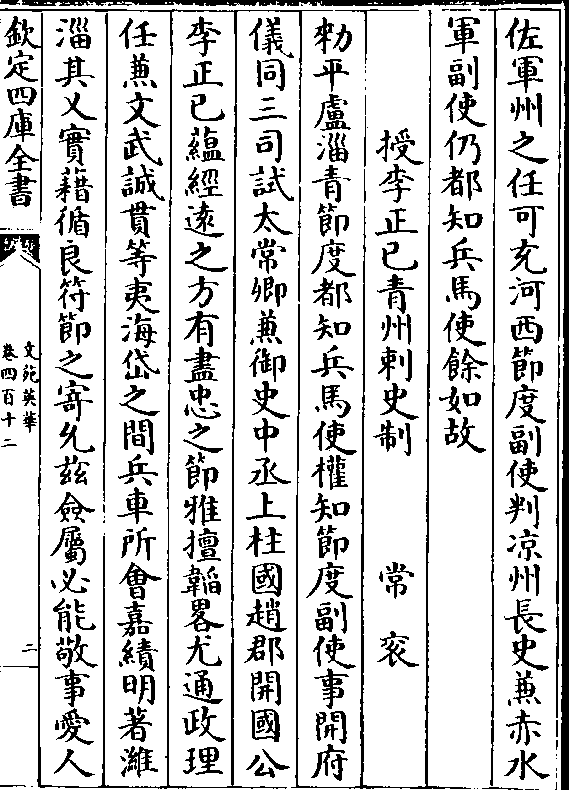 佐軍州之任可充河西節度副使判涼州長史兼赤水
軍副使仍都知兵馬使餘如故
授李正已青州刺史制 常袞
勑平盧淄青節度都知兵馬使權知節度副使事開府
儀同三司試太常卿兼御史中丞上柱國趙郡開國公
李正已蘊經遠之方有盡忠之節雅擅韜畧尤通政理
任兼文武誠貫等夷海岱之間兵車所會嘉績明著濰
淄其乂實藉循良符節之寄允茲僉屬必能敬事愛人
欽定四庫全書
文苑英華
卷四百十二
二